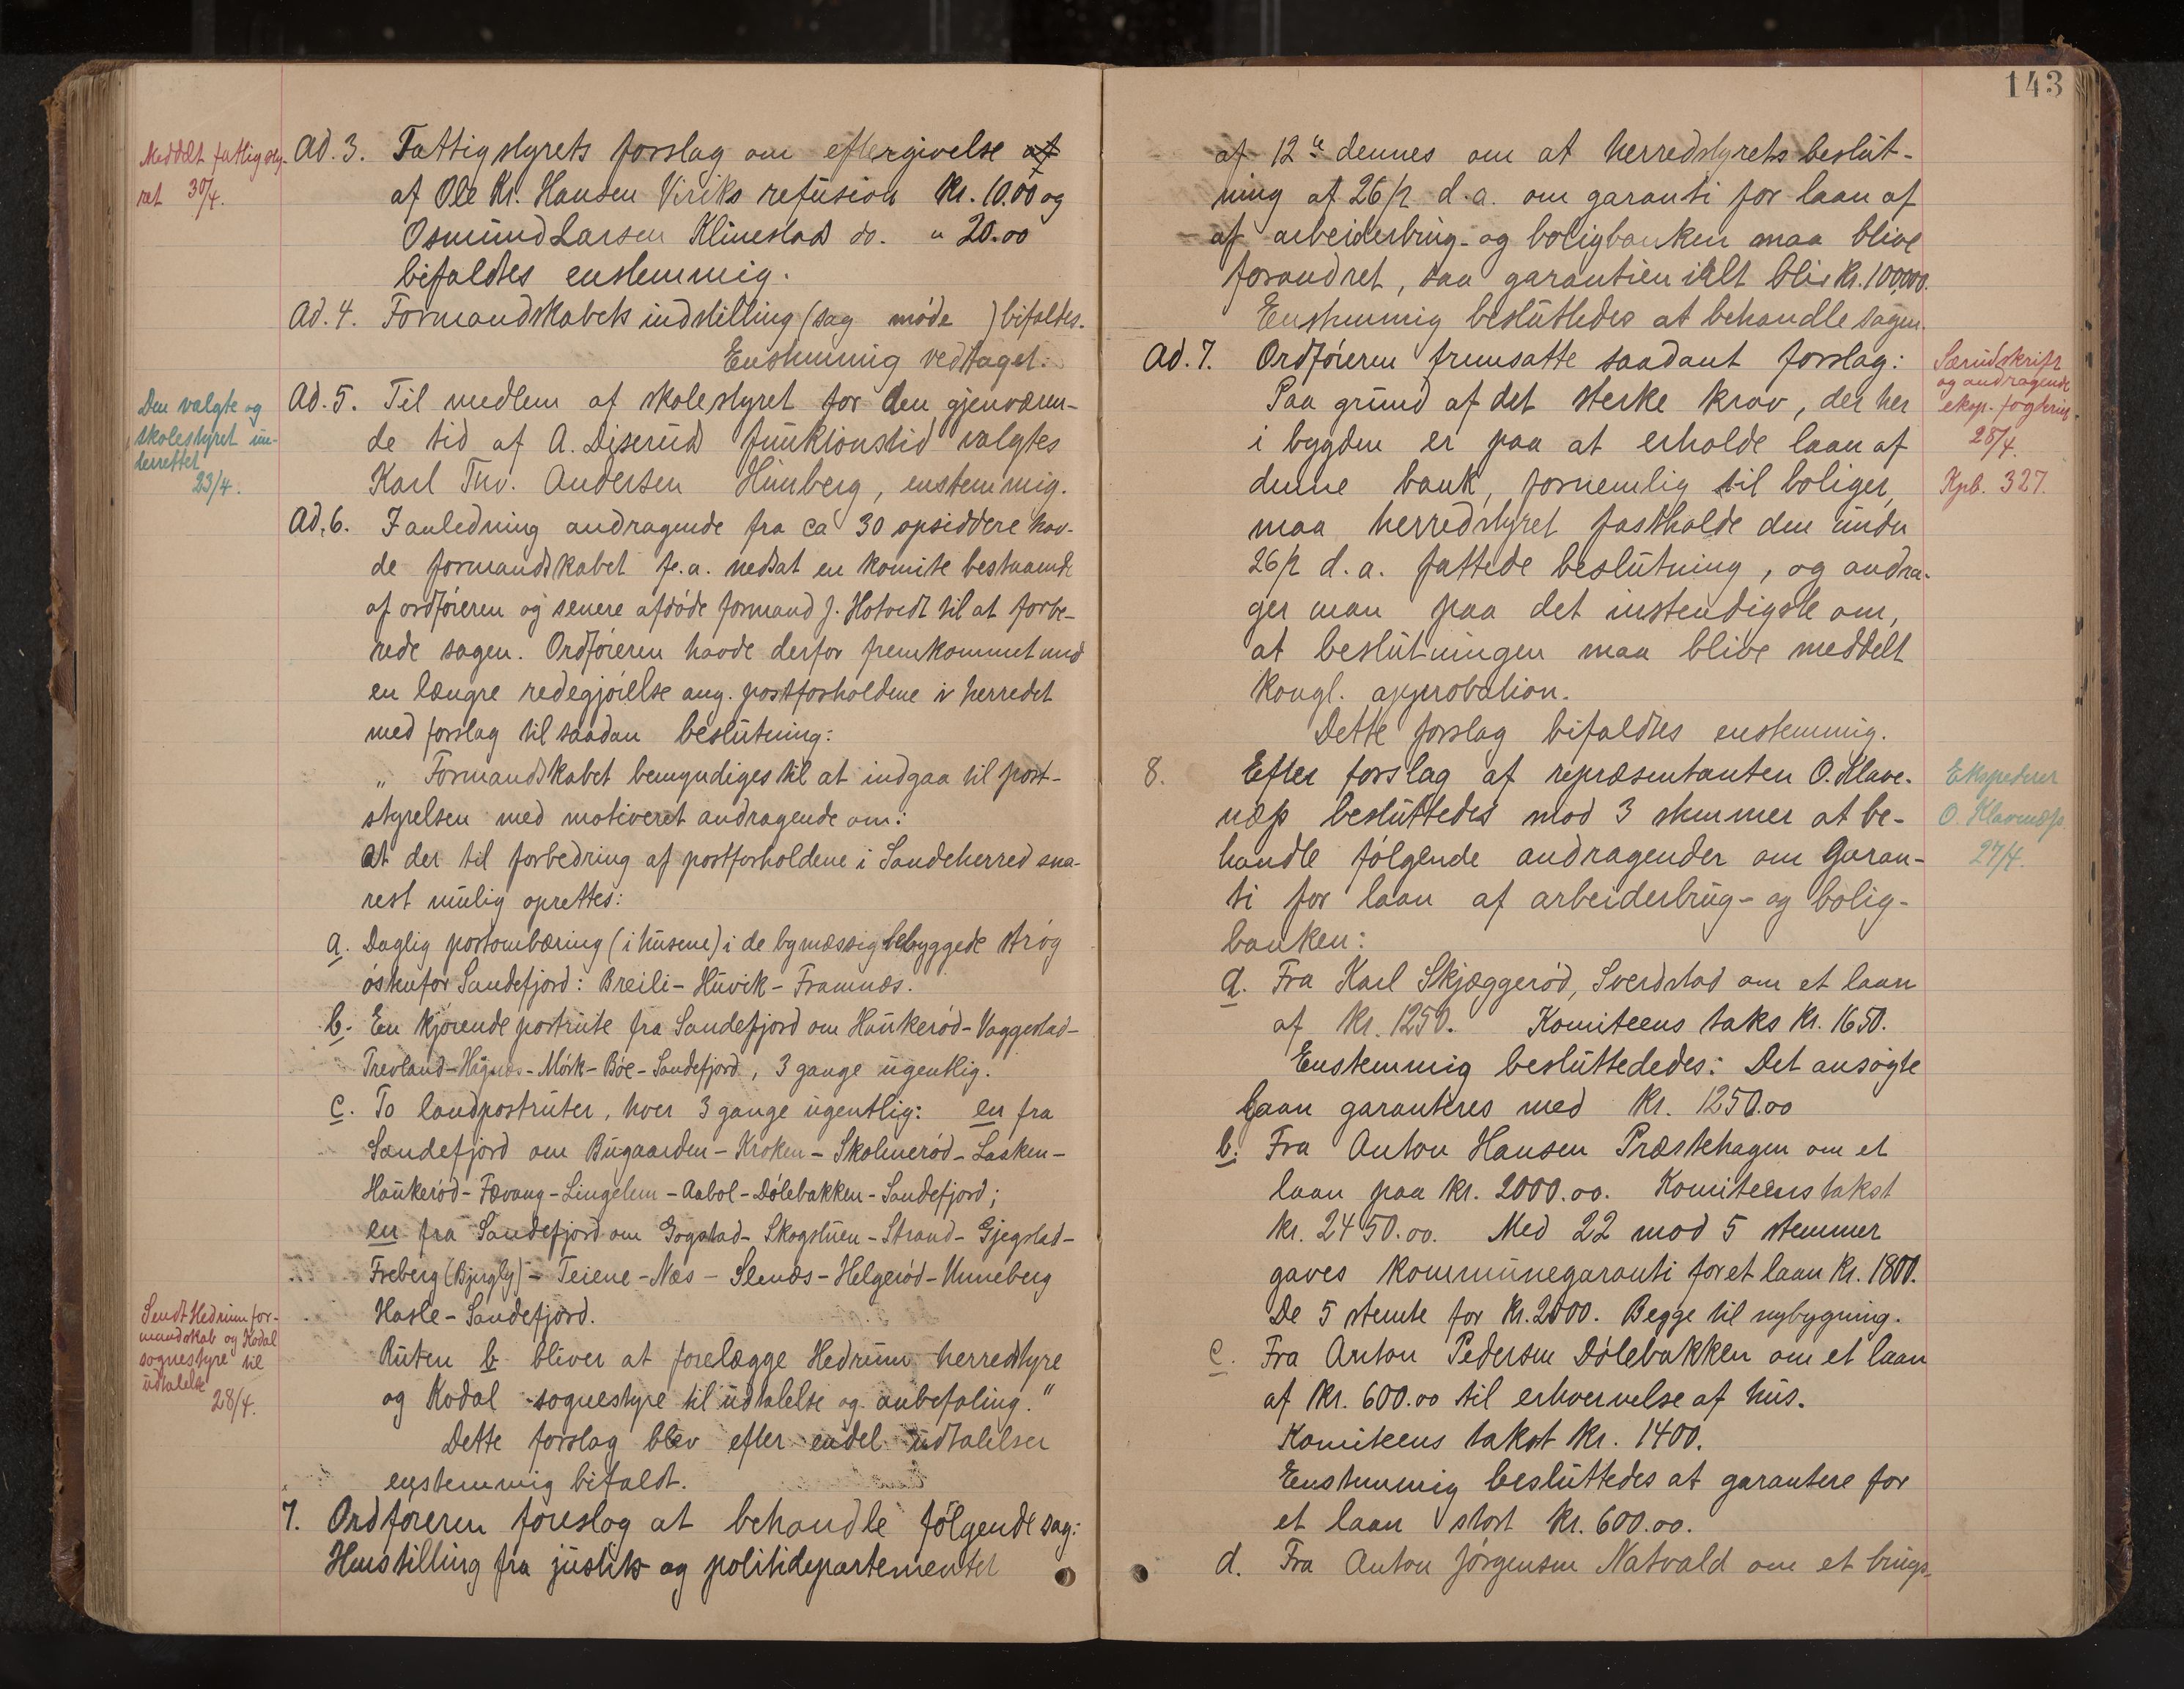 Meddelt fattigsty-
ret 30/4.
Ad. 3. Fattigstyrets forslag om eftergivelse af
af Ole Kr. Hansen Viriks refusion Kr. 10.00 og
Osmund Larsen Klinestad do. " 20.00
bifaldtes enstemmig.
Ad. 4. Formandskabets indstilling (sag møde ) bifaldes.
Enstemmig vedtaget.
Den valgte og
skolestyret un-
derrettet
23/4.
Ad. 5. Til medlem af skolestyret for den gjenværen-
de tid af A. Diserud funktionstid valgtes
Karl Thv. Andersen Himberg, enstemmig.
Ad. 6. I anledning andragende fra ca 30 opsiddere hav-
de formandskabet f.a. nedsat en komite bestaaende
af ordføreren og senere afdøde formand J. Hotvedt til at forbe-
rede sagen. Ordføreren havde derfor fremkommet med
en længre redegjørelse ang. postforholdene i herredet
med forslag til saadan beslutning:
„ Formandskabet bemyndiges til at indgaa til post-
styrelsen med motiveret andragende om:
at der til forbedring af postforholdene i Sandeherred sna-
rest mulig oprettes:
a. Daglig postombæring (i husene) i de bymæssig bebyggede strøg
østenfor Sandefjord: Breili - Huvik - Framnæs.
b. En kjørende postrute fra Sandefjord om Haukerød - Vaggestad -
Trevland - Hagnæs - Mørk - Bøe - Sandefjord, 3 gange ugentlig.
c. To landpostruter, hver 3 gange ugentlig: en fra
Sandefjord om Bugaarden - Kroken - Skolmerød - Lasken -
Haukerød - Fævang - Lingelem - Aabol - Dølebakken - Sandefjord;
en fra Sandefjord om Gogstad - Skogstuen - Strand - Gjegstad -
Freberg (Bjergly) - Teiene - Næs - Stenæs - Helgerød - Unneberg
Hasle - Sandefjord.
Sendt Hedrum for-
mandskab og Kodal
sognestyre til
udtalelse
28/4.
Ruten b bliver at forelægge Hedrum herredstyre
og Kodal sognestyre til udtalelse og anbefaling."
Dette forslag blev efter endel udtalelser
enstemmig bifaldt.
7. Ordføreren foreslog at behandle følgende sag:
Henstilling fra justits og politidepartementet
143
af 12te dennes om at herredstyrets beslut-
ning af 26/2 d.a. om garanti for laan af
af arbeiderbrug- og boligbanken maa blive
forandret, saa garantien ialt blir Kr. 100,000.
Enstemmig besluttedes at behandle sagen.
Ad. 7. Ordføreren fremsatte saadant forslag:
Paa grund af det sterke krav, der her
i bygden er paa at erholde laan af
denne bank, fornemlig til boliger,
maa herredstyret fastholde den under
26/2 d.a. fattede beslutning, og andra-
ger man paa det instendigste om,
at beslutningen maa blive meddelt
kongl. approbation.
Dette forslag bifaldtes enstemmig.
Særudskrift
og andragende
eksp. fogderiet
28/4.
Kpb. 327.
8. Efter forslag af repræsentanten O. Klave-
næss besluttedes mod 3 stemmer at be-
handle følgende andragender om garan-
ti for laan af arbeiderbrug- og bolig-
banken:
Ekspederet
O. Klavenæss
27/4.
a. Fra Karl Skjæggerød, Sverdstad om et laan
af Kr. 1250. Komiteens takst Kr. 1650.
Enstemmig besluttededes: Det ansøgte
laan garanteres med Kr. 1250.00
b. Fra Anton Hansen Præstehagen om et
laan paa Kr. 2000.00. Komiteens takst
Kr. 2450.00. Med 22 mod 5 stemmer
gaves kommunegaranti for et laan Kr. 1800.
De 5 stemte for Kr. 2000. Begge til nybygning.
c. Fra Anton Pedersen Dølebakken om et laan
af Kr. 600.00 til erhvervelse af hus.
Komiteens takst Kr. 1400.
Enstemmig besluttedes at garantere for
et laan stort Kr. 600.00.
d. Fra Anton Jørgensen Natvald om et brugs-